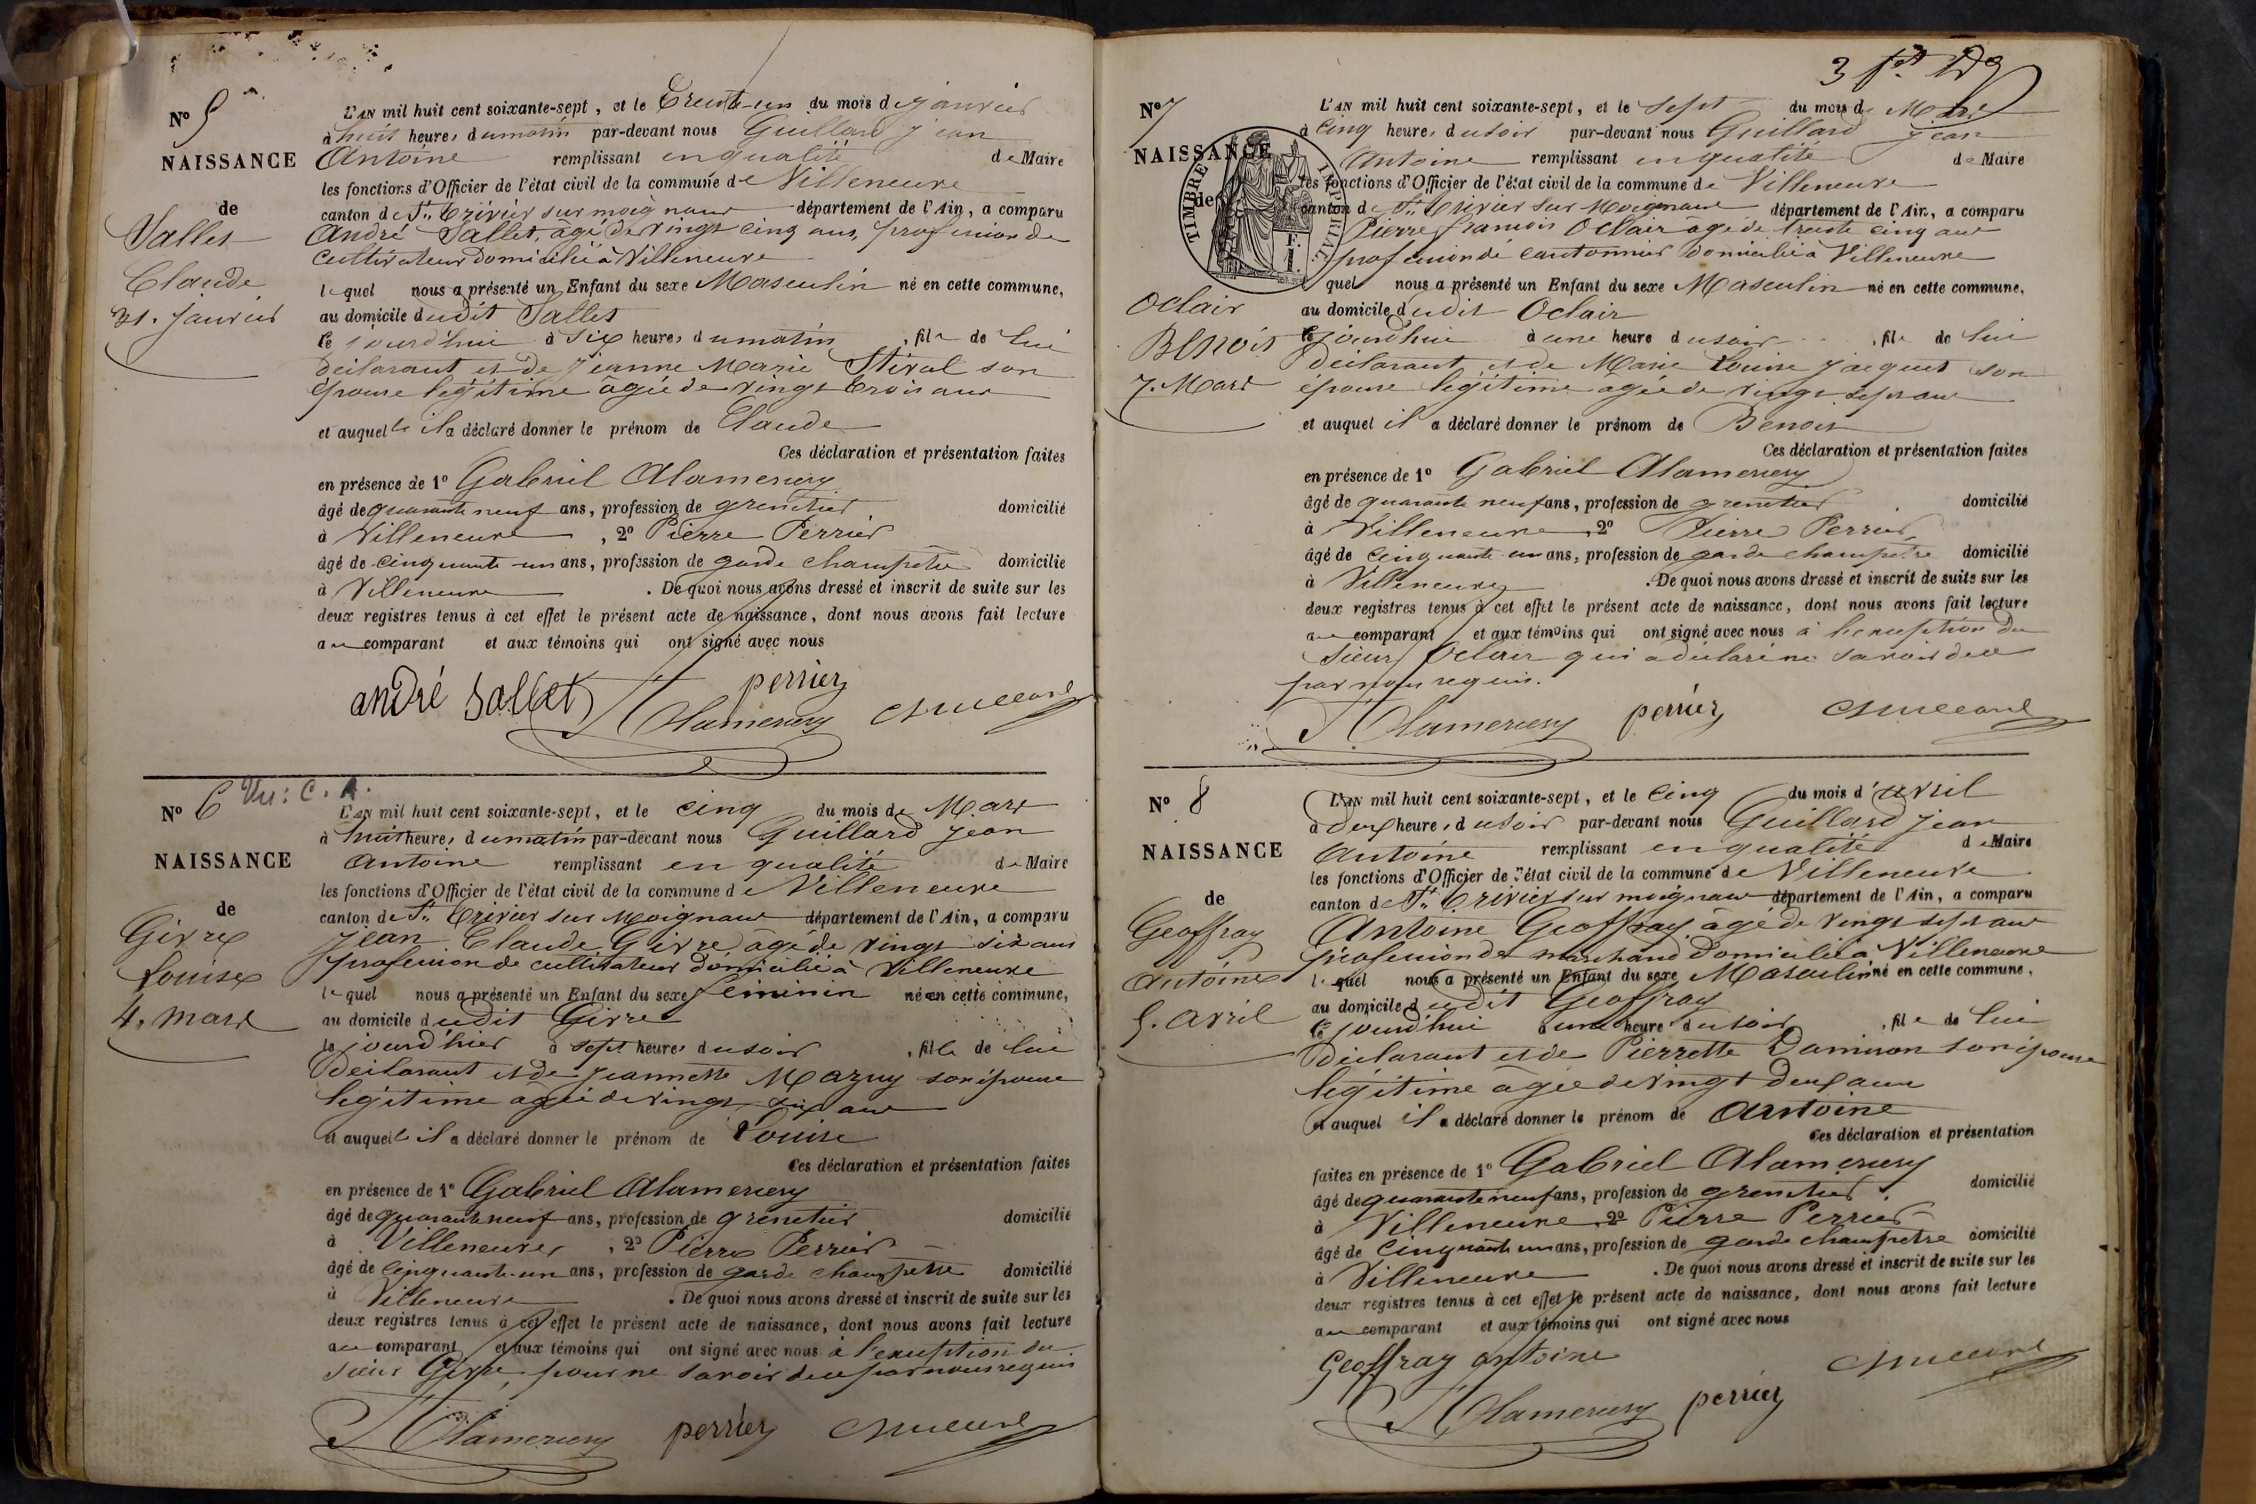 N° 5
NAISSANCE
de
Sallet
Claude
31. Janvier
L'AN mil huit cent soixante-sept, et le Trente-un du mois de janvier
à huit heures du matin par-devant nous Guillard Jean
Antoine remplissant en qualité de Maire
les fonctions d'Officier de l'état civil de la commune de Villeneuve
canton de St. Trivier sur moignans département de l'Ain, a comparu
André Sallet, âgé de vingt cinq ans, profession de
cultivateur domicilié à Villeneuve
lequel nous a présenté un Enfant du sexe Masculin né en cette commune,
au domicile dudit Sallet
ce jourd'hui à six heures du matin, fils de lui
déclarant et de Jeanne Marie Stival son
épouse légitime âgée de vingt trois ans
et auquel il a déclaré donner le prénom de Claude
Ces déclaration et présentation faites
en présence de 1° Gabriel Alamercery
âgé de quarante neuf ans, profession de grenetier domicilié
à Villeneuve, 2° Pierre Perrier
âgé de cinquante-un ans, profession de garde champêtre domicilié
à Villeneuve. De quoi nous avons dressé et inscrit de suite sur les
deux registres tenus à cet effet le présent acte de naissance, dont nous avons fait lecture
au comparant et aux témoins qui ont signé avec nous
andré Sallet perrier
Alamercery Guillard
N° 6 Vu: C. A.
NAISSANCE
de
Givre
Louise
4. Mars
L'AN mil huit cent soixante-sept, et le cinq du mois de Mars
à huit heures du matin par-devant nous Guillard Jean
Antoine remplissant en qualité de Maire
les fonctions d'Officier de l'état civil de la commune de Villeneuve
canton de St. Trivier sur Moignans département de l'Ain, a comparu
Jean Claude Givre âgé de vingt six ans
profession de cultivateur domicilié à Villeneuve
lequel nous a présenté un Enfant du sexe féminin né en cette commune,
au domicile dudit Givre
le jourd'hier à sept heures du soir, fille de lui
déclarant et de Jeannette Mazuy son épouse
légitime âgée de vingt six ans
et auquel il a déclaré donner le prénom de Louise
Ces déclaration et présentation faites
en présence de 1° Gabriel Alamercery
âgé de quarante neuf ans, profession de grenetier domicilié
à Villeneuve, 2° Pierre Perrier
âgé de cinquante-un ans, profession de garde champetre domicilié
à Villeneuve. De quoi nous avons dressé et inscrit de suite sur les
deux registres tenus à cet effet le présent acte de naissance, dont nous avons fait lecture
au comparant et aux témoins qui ont signé avec nous à l'exception du
sieur Givre, pour ne savoir de ce par nous requis
Alamercery perrier Guillard
3
N° 7
NAISSANCE
de
TIMBRE IMPERIAL
1 F.
Oclair
Benoit
7. Mars
L'AN mil huit cent soixante-sept, et le Sept du mois de Mars
à cinq heures du soir par-devant nous Guillard Jean
Antoine remplissant en qualité de Maire
les fonctions d'Officier de l'état civil de la commune de Villeneuve
canton de St. Trivier sur Moignans département de l'Ain, a comparu
Pierre françois Oclair âgé de trente cinq ans
profession de cantonnier domicilié à Villeneuve
quel nous a présenté un Enfant du sexe Masculin né en cette commune,
au domicile dudit Oclair
ce jourd'hui à une heure du soir, fils de lui
déclarant et de Marie Louise Jacquet son
épouse légitime âgée de vingt sept ans
et auquel il a déclaré donner le prénom de Benoit
Ces déclaration et présentation faites
en présence de 1° Gabriel Alamercery
âgé de quarante neuf ans, profession de grenetier domicilié
à Villeneuve 2° Pierre Perrier
âgé de cinquante-un ans, profession de garde champetre domicilié
à Villeneuve. De quoi nous avons dressé et inscrit de suite sur les
deux registres tenus à cet effet le présent acte de naissance, dont nous avons fait lecture
au comparant et aux témoins qui ont signé avec nous à l'exception du
sieur Oclair qui a déclaré ne savoir de ce
par nous requis.
Alamercery perrier Guillard
N° 8
NAISSANCE
de
Geoffray
Antoine
5. avril
L'AN mil huit cent soixante-sept, et le cinq du mois d'avril
à deux heures du soir par-devant nous Guillard Jean
Antoine remplissant en qualité de Maire
les fonctions d'Officier de l'état civil de la commune de Villeneuve
canton de St. Trivier sur moignans département de l'Ain, a comparu
Antoine Geoffray âgé de vingt sept ans
profession de marchand domicilié à Villeneuve
lequel nous a présenté un Enfant du sexe Masculin né en cette commune,
au domicile dudit Geoffray
ce jourd'hui à une heure du soir, fils de lui
déclarant et de Pierrette Damiron son épouse
légitime âgée de vingt deux ans
et auquel il a déclaré donner le prénom de Antoine
Ces déclaration et présentation
faites en présence de 1° Gabriel Alamercery
âgé de quarante neuf ans, profession de grenetier domicilié
à Villeneuve 2° Pierre Perrier
âgé de cinquante un ans, profession de garde champetre domicilié
à Villeneuve. De quoi nous avons dressé et inscrit de suite sur les
deux registres tenus à cet effet le présent acte de naissance, dont nous avons fait lecture
au comparant et aux témoins qui ont signé avec nous
Geoffray antoine Guillard
Alamercery perrier